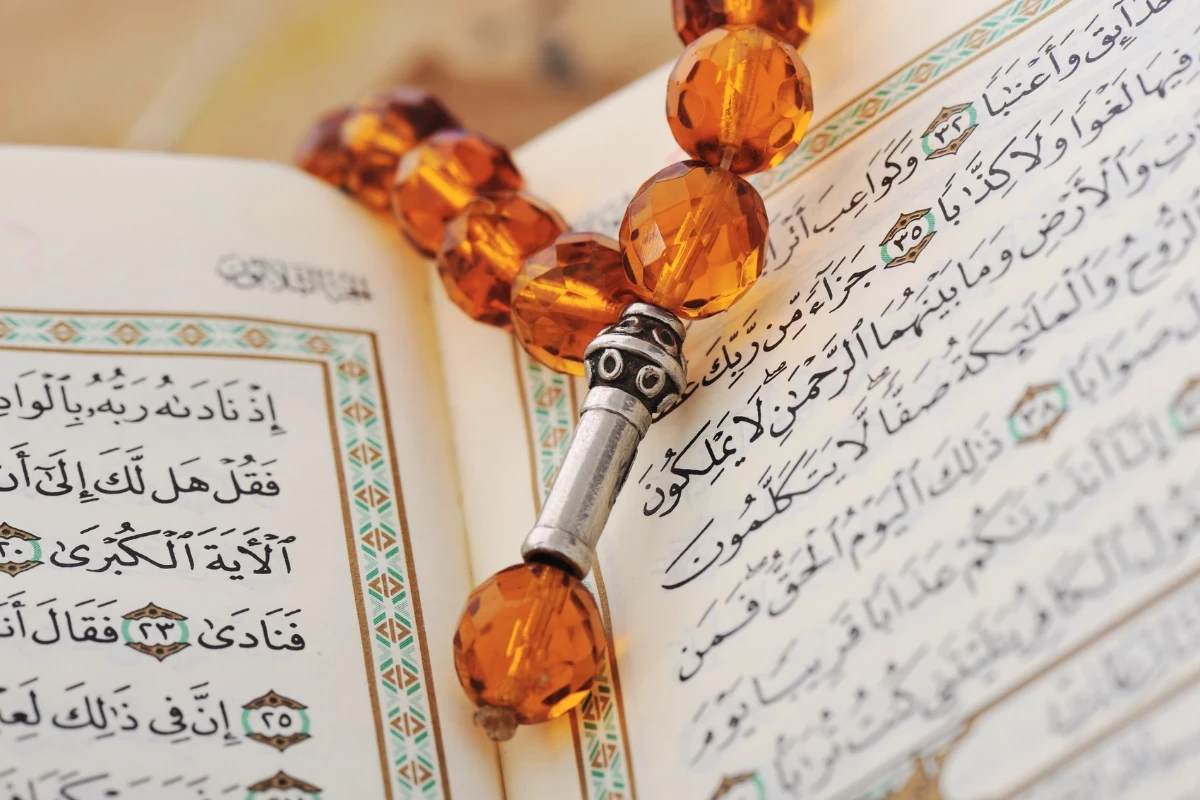 حَدَآئِقَ وَأَعْنَٰبًا ٣٢ وَكَوَاعِبَ
فِيهَا لَغْوًا وَلَا كِذَّٰبًا ٣٥ جَزَآءً مِّن رَّبِّكَ
وَٱلْأَرْضِ وَمَا بَيْنَهُمَا ٱلرَّحْمَٰنِ لَا يَمْلِكُونَ
ٱلرُّوحُ وَٱلْمَلَٰٓئِكَةُ صَفًّا لَّا يَتَكَلَّمُونَ
صَوَابًا ٣٨ ذَٰلِكَ ٱلْيَوْمُ ٱلْحَقُّ فَمَن
إِنَّآ أَنذَرْنَٰكُمْ عَذَابًا قَرِيبًا يَوْمَ
يَقُولُ ٱلْكَافِرُ يَٰلَيْتَنِى كُنتُ تُرَٰبًا
الجزء الثلاثون
إِذْ نَادَىٰهُ رَبُّهُۥ بِٱلْوَادِ
فَقُلْ هَل لَّكَ إِلَىٰٓ أَن
ٱلْأَيَةَ ٱلْكُبْرَىٰ ٢٠
فَنَادَىٰ ٢٣ فَقَالَ
٢٥ إِنَّ فِى ذَٰلِكَ